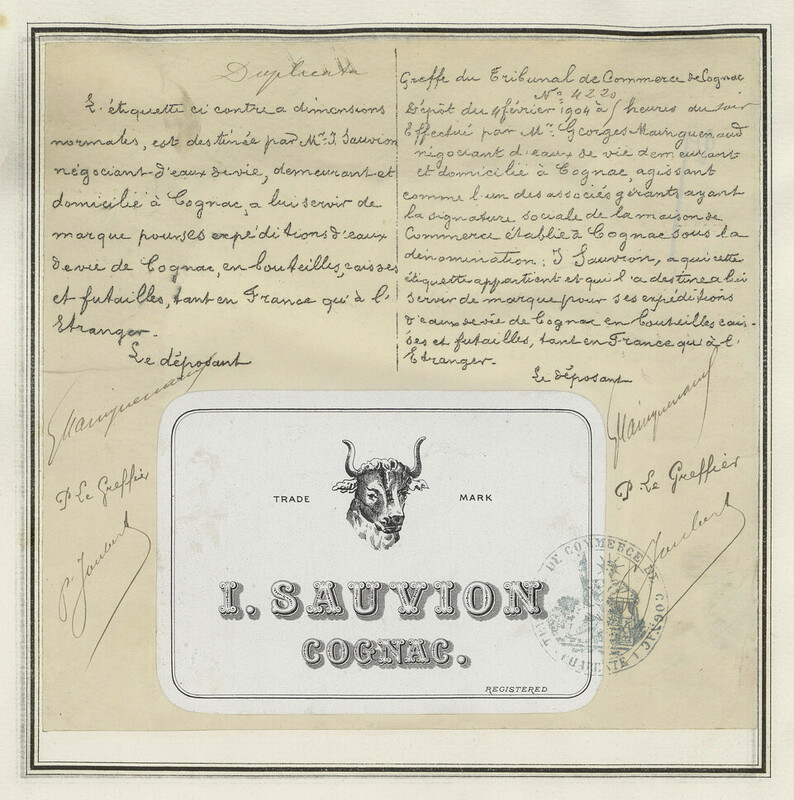 Duplicata
L'étiquette ci contre a dimensions
normales, est destinée par Mr. J. Sauvion
négociant d'eaux de vie, demeurant et
domicilié à Cognac, a lui servir de
marque pour ses expéditions d'eaux
de vie de Cognac, en bouteilles, caisses
et futailles, tant en France qu'à l'
Etranger.
Le déposant
GMainguenaud
P. Le Greffier
P. Joubert
Greffe du Tribunal de Commerce de Cognac
No. 4220
Dépôt du 4 février 1904 à 5 heures du soir
Effectué par Mr. Georges Mainguenaud
négociant d'eaux de vie demeurant
et domicilié à Cognac, agissant
comme l'un des associés gérants ayant
la signature sociale de la maison de
Commerce établie à Cognac sous la
dénomination: J Sauvion, a qui cette
étiquette appartient et qui l'a destinée a lui
servir de marque pour ses expéditions
d'eaux de vie de Cognac en bouteilles cais-
ses et futailles, tant en France qu'à l'
Etranger.
Le déposant
GMainguenaud
P. Le Greffier
Joubert
TRADE MARK
I. SAUVION
COGNAC.
REGISTERED
DE COMMERCE DE COGNAC